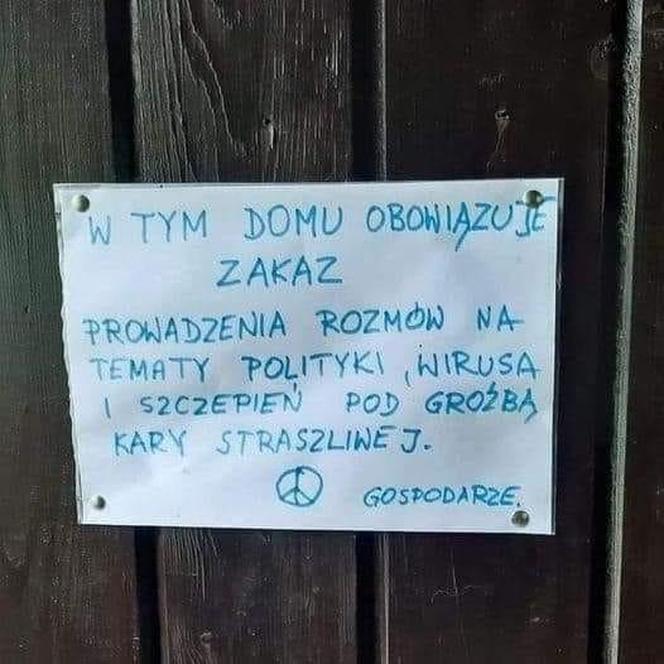 W TYM DOMU OBOWIĄZUJE
ZAKAZ
PROWADZENIA ROZMÓW NA
TEMATY POLITYKI, WIRUSA
I SZCZEPIEŃ POD GROŹBĄ
KARY STRASZLIWEJ.
GOSPODARZE.